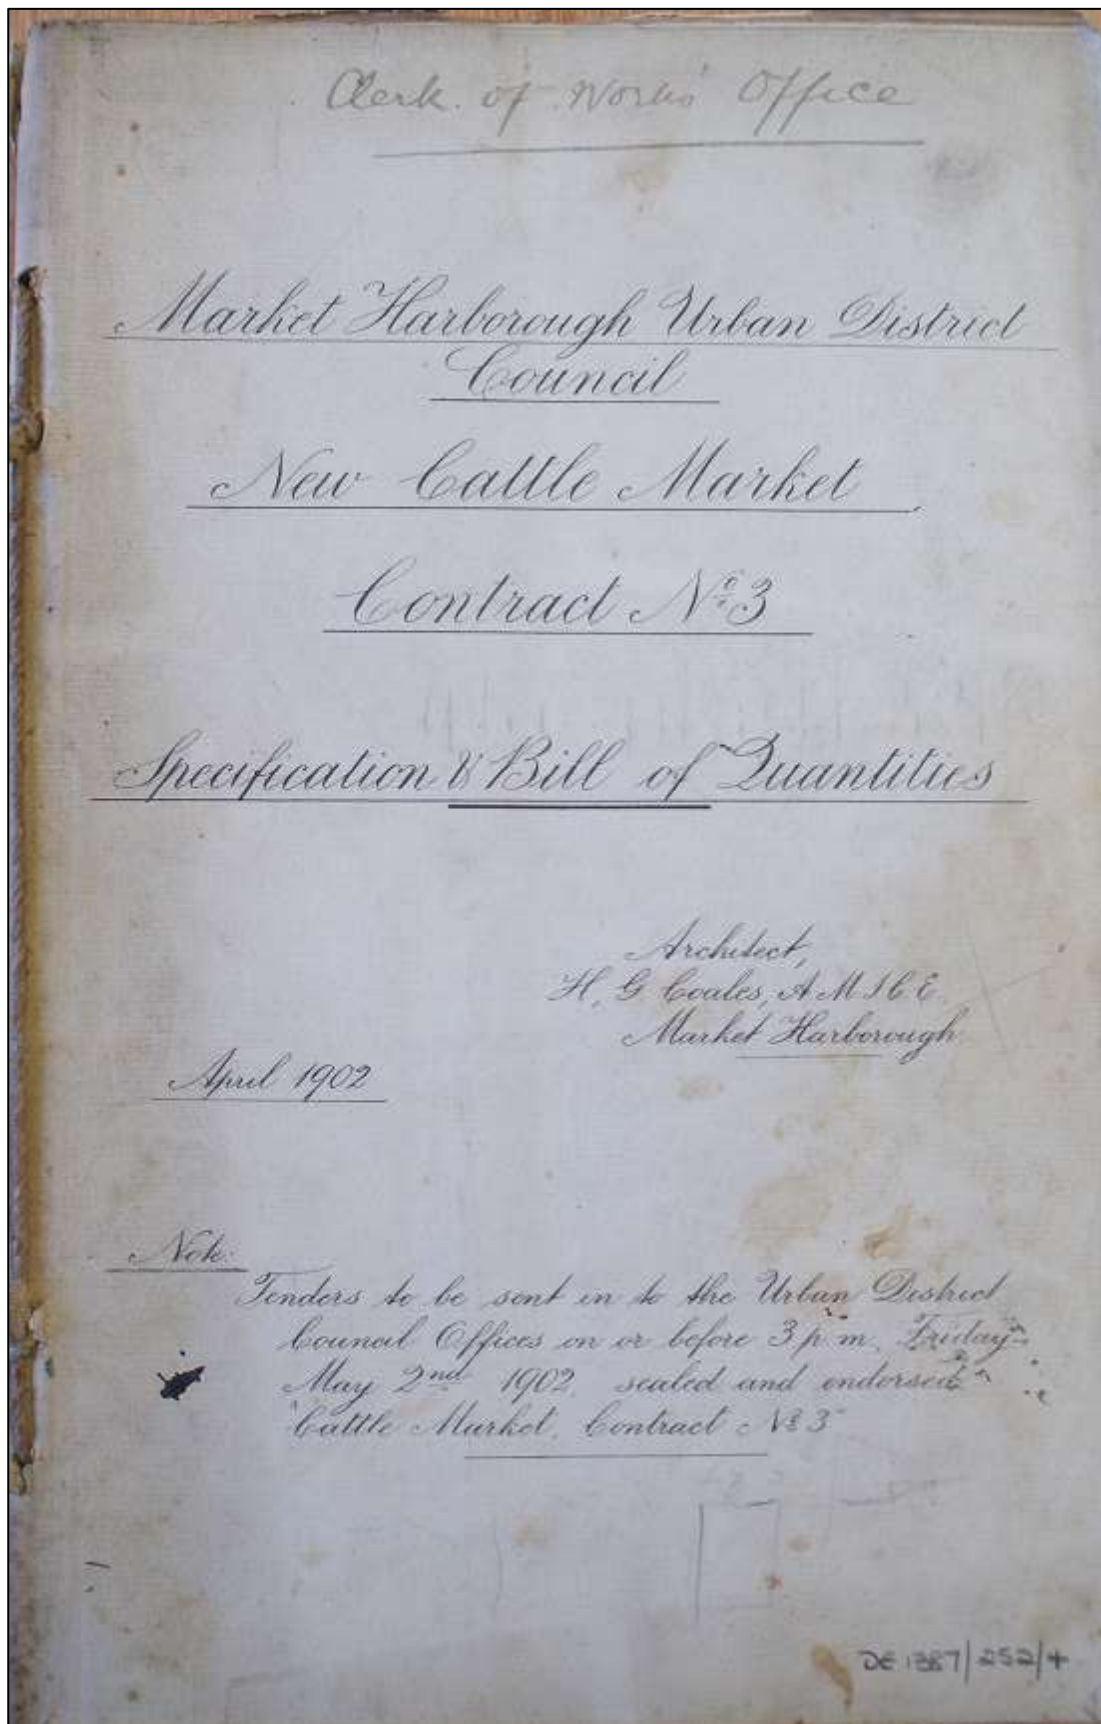 Clerk of Works' Office
Market Harborough Urban District
Council
New Cattle Market
Contract No. 3
Specification & Bill of Quantities
Architect,
H. G. Coales, A M I C E.
Market Harborough
April 1902
Note:
Tenders to be sent in to the Urban District
Council Offices on or before 3 p.m. Friday
May 2nd 1902, sealed and endorsed
"Cattle Market, Contract No 3"
DE 1387/252/4